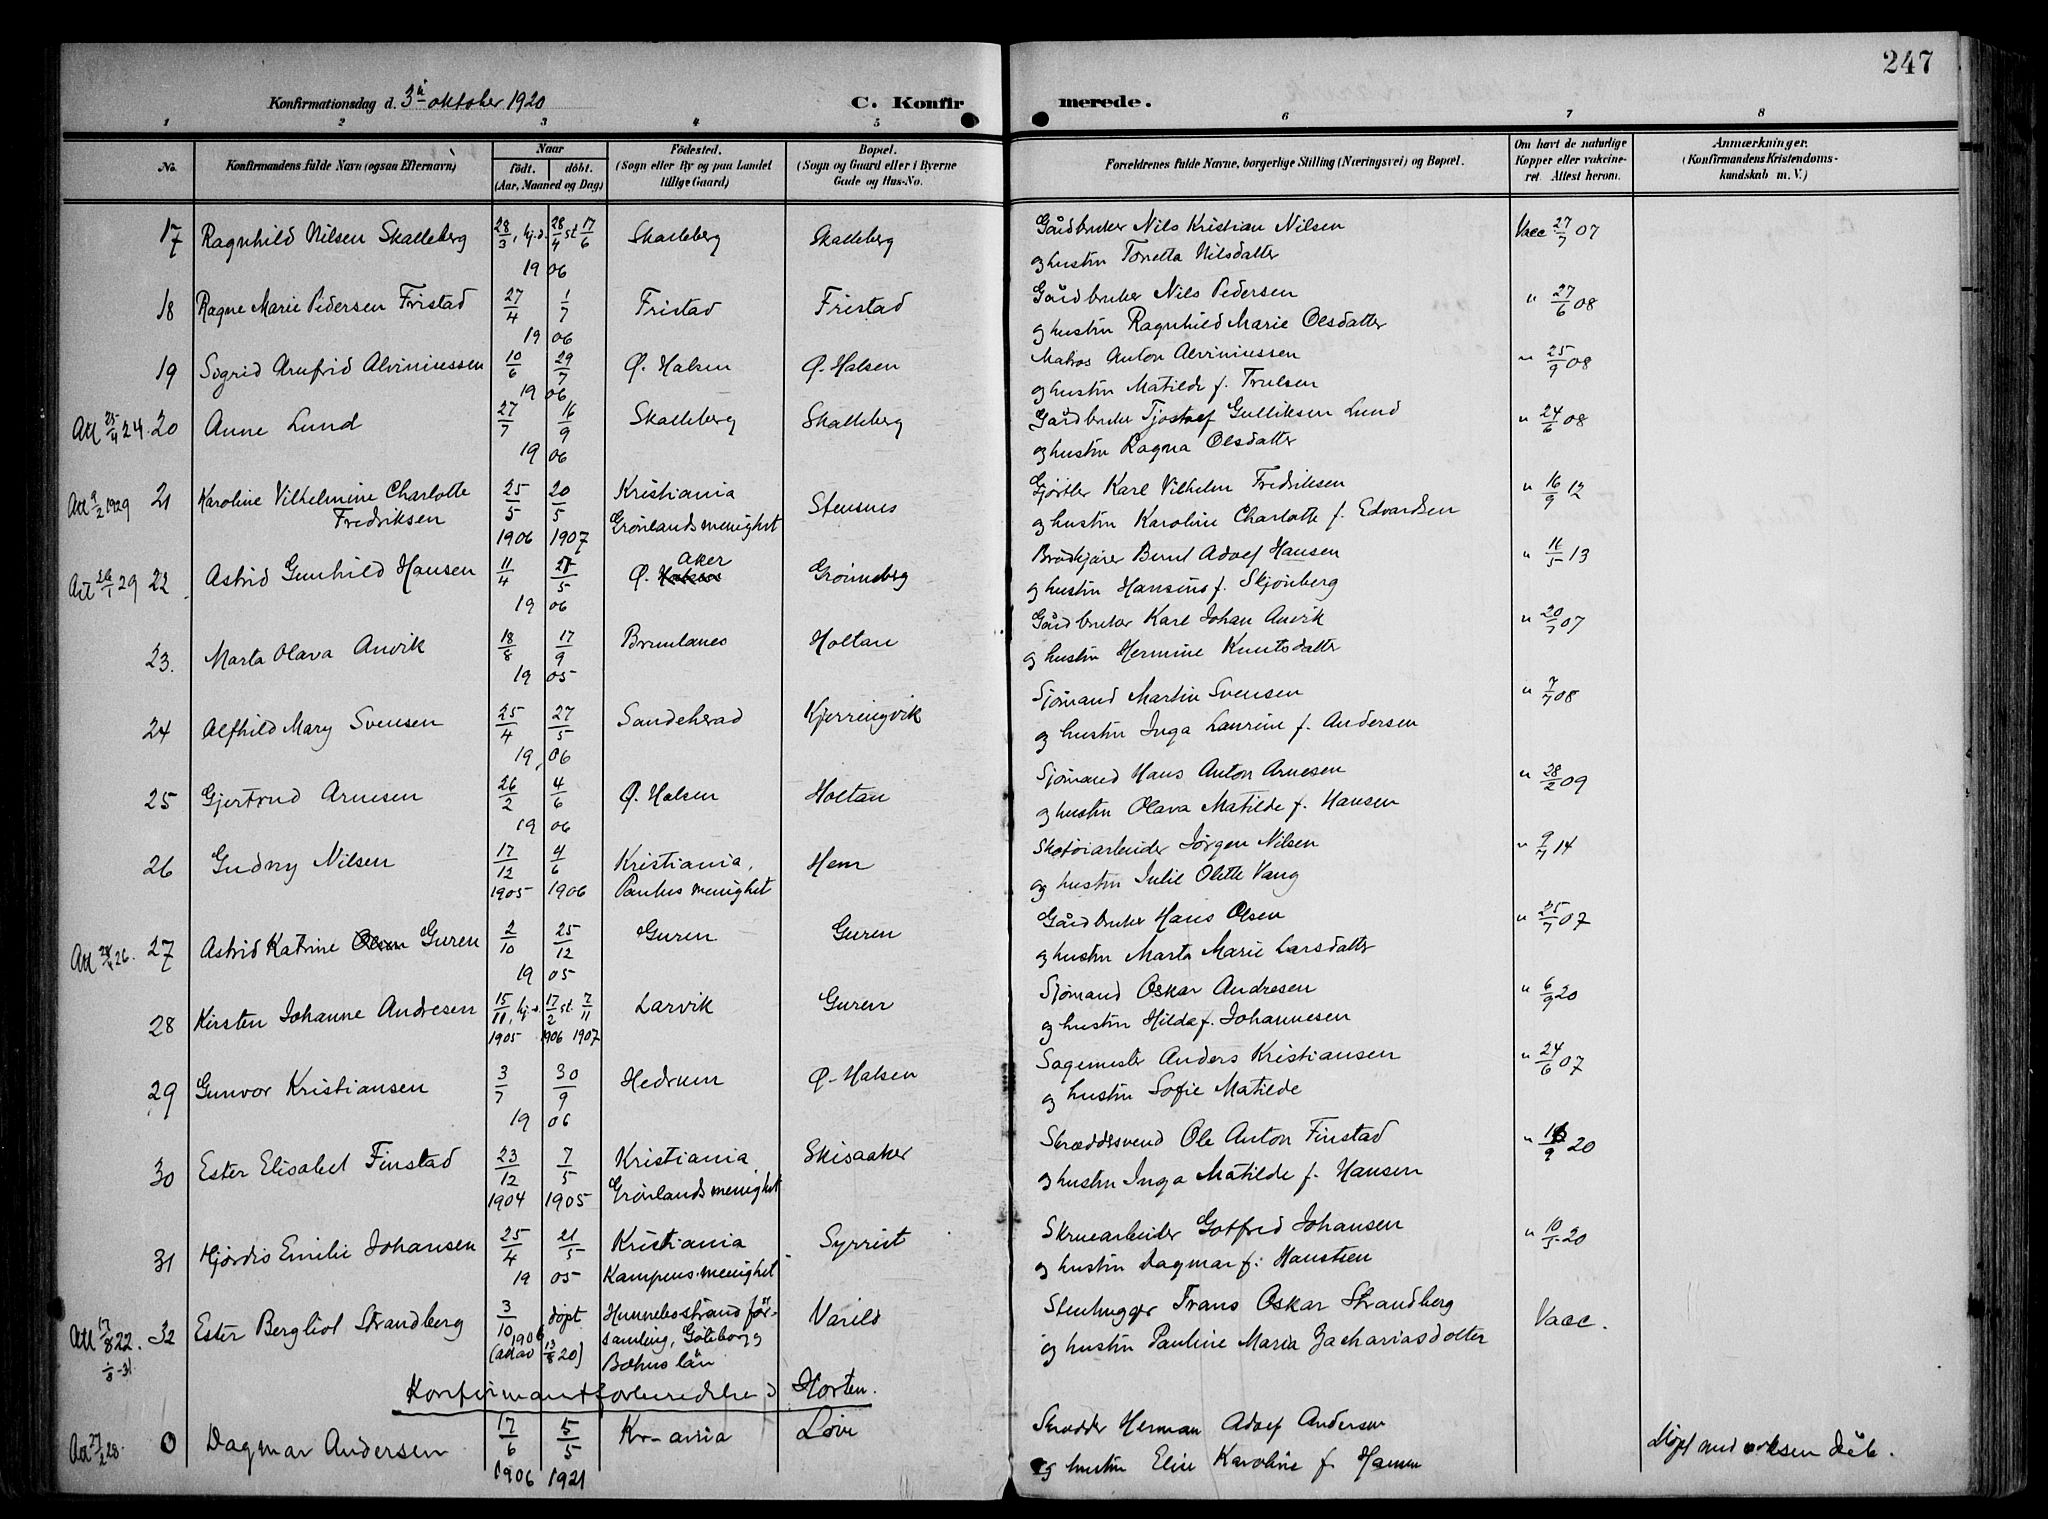 247
Konfirmationsdag d. 3die oktober 1920 C. Konfirmerede.
1 2 3 4 5 6 7 8
No. Konfirmandens fulde Navn (ogsaa Efternavn) Naar født. døbt. (Aar, Maaned og Dag) Fødested. (Sogn eller By og paa Landet tillige Gaard) Bopæl. (Sogn og Gaard eller i Byerne Gade og Hus-No. Forældrenes fulde Navne, borgerlige Stilling (Næringsvei) og Bopæl. Om havt de naturlige Kopper eller vaccineret. Attest herom. Anmærkninger. (Konfirmandens Kristendomskundskab m. V.)
17 Ragnhild Nilsen Skalleberg 28/3, hj.d. 28/4 st 17/6 Skalleberg Skalleberg Gårdbruker Nils Kristian Nilsen Vacc 27/7 07
19 06 og hustru Toretta Nilsdatter
18 Ragne Marie Pedersen Fristad 27/4 1/7 Fristad Fristad Gårdbruker Nils Pedersen " 27/6 08
19 06 og hustru Ragnhild Marie Olsdatter
19 Sigrid Arnfrid Alviniussen 10/6 29/7 Ø. Halsen Ø. Halsen Matros Anton Alviniussen " 25/9 08
19 06 og hustru Matilde f. Trulsen
Att 25/4 24. 20 Anne Lund 27/7 16/9 Skalleberg Skalleberg Gårdbruker Tjostolf Gulliksen Lund " 24/6 08
19 06 og hustru Ragna Olsdatter
Att 9/2 1929 21 Karoline Vilhelmine Charlotte 25/5 20/5 Kristiania Stensnes Gjørtler Karl Vilhelm Fredriksen " 16/9 12
Fredriksen 1906 1907 Grønlands menighet og hustru Karoline Charlotte f. Edvardsen
Att 26/1 29 22 Astrid Gunhild Hansen 11/4 /5 Ø. Aker Grønneberg Brødkjører Bernt Adolf Hansen " 11/5 13
19 06 og hustru Hansine f. Skjønberg
23. Marta Olava Anvik 18/8 17/9 Brunlanes Holtan Gårdbruker Karl Johan Anvik " 20/7 07
19 05 og hustru Hermine Knutsdatter
24 Alfhild Mary Svensen 25/4 27/5 Sandeherad Kjerringvik Sjømand Martin Svensen " 7/7 08
19 06 og hustru Inga Laurine f. Andersen
25 Gjertrud Arnesen 26/2 4/6 Ø. Halsen Holtan Sjømand Hans Anton Arnesen " 28/2 09
19 06 og hustru Olava Matilde f. Hansen
26 Gudny Nilsen 17/12 4/6 Kristiania, Hem Skotøiarbeider Jørgen Nilsen " 9/7 14
1905 1906 Paulus menighet og hustru Julie Olette Vang
Att 26. 27 Astrid Katrine Olsen Guren 2/10 25/12 Guren Guren Gårdbruker Hans Olsen " 25/7 07
19 05 og hustru Marta Marie Larsdatter
28 Kirsten Johanne Andresen 15/11, hj.d. 17/2 st. 7/11 Larvik Guren Sjømand Oskar Andresen " 6/9 20
1905 1906 1907 og hustru Hilda f. Johannesen
29 Gunvor Kristiansen 3/7 30/9 Hedrum Ø. Halsen Sagemester Anders Kristiansen " 24/6 07
19 06 og hustru Sofie Matilde
30 Ester Elisabet Finstad 23/12 7/5 Kristiania Skisaaker Skræddersvend Ole Anton Finstad " /9 20
1904 1905 Grønlands menighet og hustru Inga Matilde f. Hansen
31 Hjørdis Emilie Johansen 25/4 21/5 Kristiania Syrrist Skruearbeider Gotfred Johansen " 10/5 20
19 05 Kampens menighet og hustru Dagmar f. Hansteen
Att 17/8 22. 32 Ester Bergliot Strandberg 3/10 1906 døpt Hunnebostrand för- Varild Stenhugger Frans Oskar Strandberg Vacc.
(attest 13/8 20) samling, Göteborg og og hustru Pauline Maria Zachariasdotter
Bohus län
Konfirmantforberedelse i Horten.
Att 27/2 28. 0 Dagmar Andersen 17/6 5/5 Kr-ania Løve Skrædder Herman Adolf Andersen
1906 1921 og hustru Elise Karoline f. Hansen Døpt med voksen dåb.